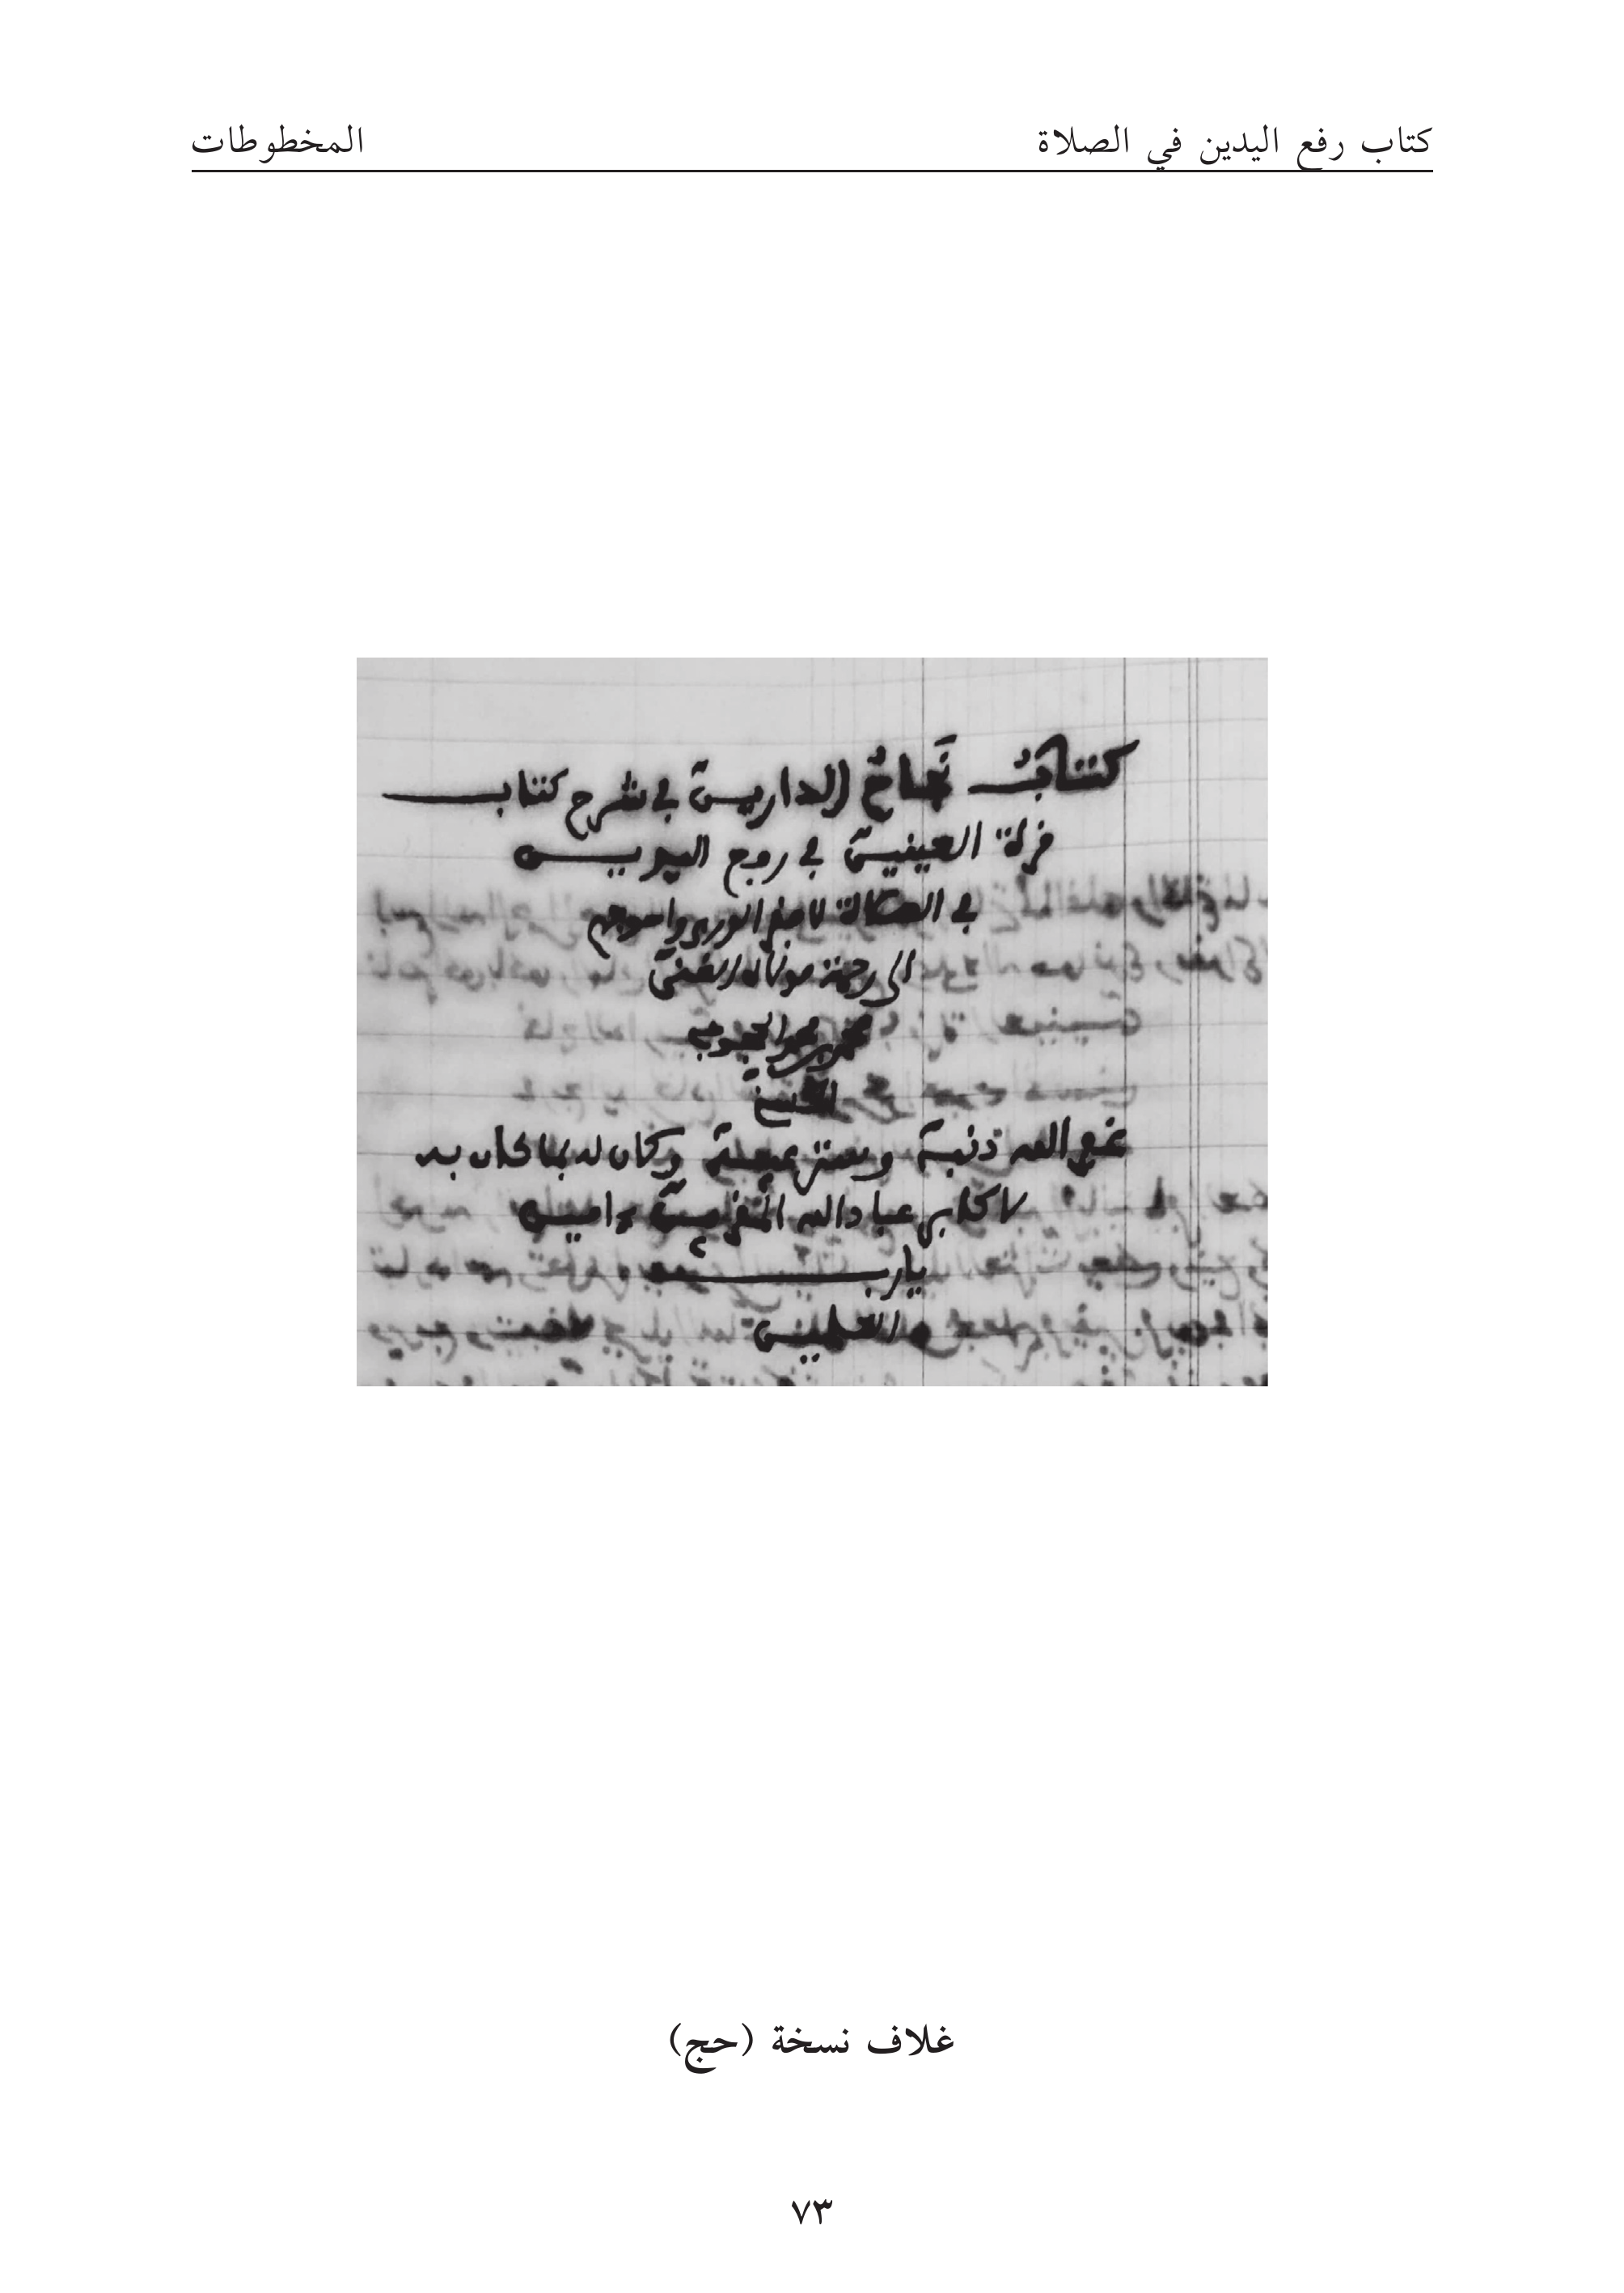 كتاب رفع اليدين في الصلاة
المخطوطات
كتاب نجاح الدارين في شرح كتاب
فرة العينين في رفع اليدين
في الصلاة لافقر الورى واحوجهم
الى رحمة مولاه الغني
محمد بن محمد الحجوجي
الحسني
غفر الله ذنبه وستر عيبه وكان له بما كان به
لاكابر عباد الله المقربين ءامين
يارب
العلمين
غلاف نسخة (حج)
٧٣